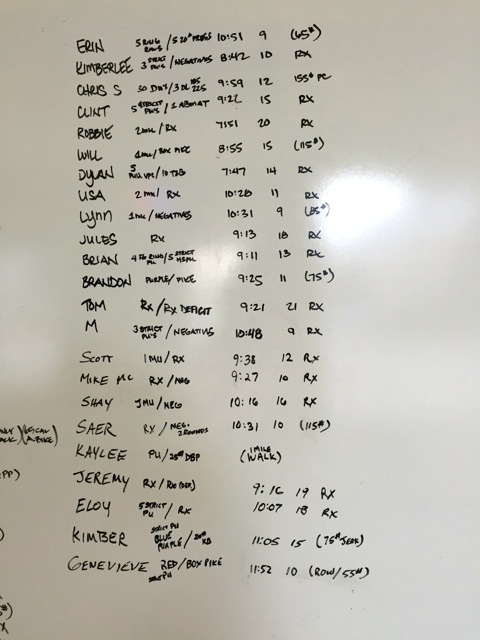 ERIN 5 RING ROWS / 5 20# PRESS 10:51 9 (65#)
KIMBERLEE 3 STRICT PU'S / NEGATIVES 8:42 10 RX
CHRIS S 30 DU'S / 3 DL 185 225 9:59 12 155# PC
CLINT 5 STRICT PU'S / 1 ABMAT 9:22 15 RX
ROBBIE 2MU / RX 7:51 20 RX
WILL 1MU / BOX PIKE 8:55 15 (115#)
DYLAN 5 PULL UPS / 10 7:47 14 RX
LISA 2MU / RX 10:28 11 RX
LYNN 1MU / NEGATIVES 10:31 9 (85#)
JULES RX 9:13 18 RX
BRIAN 4 RING / 5 STRICT HSPU 9:11 13 RX
BRANDON PURPLE / PIKE 9:25 11 (75#)
TOM RX / RX DEFICIT 9:21 21 RX
M 3 STRICT PU'S / NEGATIVES 10:48 9 RX
SCOTT 1MU / RX 9:38 12 RX
MIKE MC RX / NEG 9:27 10 RX
SHAY JMU / NEG 10:16 16 RX
SAER RX / NEG. 2 ROUNDS 10:31 10 (115#)
KAYLEE PU / 25# DBP (1 MILE WALK)
JEREMY RX / RX (DEF) 9:16 19 RX
ELOY 5 STRICT PU / RX 10:07 18 RX
KIMBER STRICT PU BLUE PURPLE / 20# KB 11:05 15 (75# JERK)
GENEVIEVE RED / BOX PIKE STRICT PU 11:52 10 (ROW / 55#)